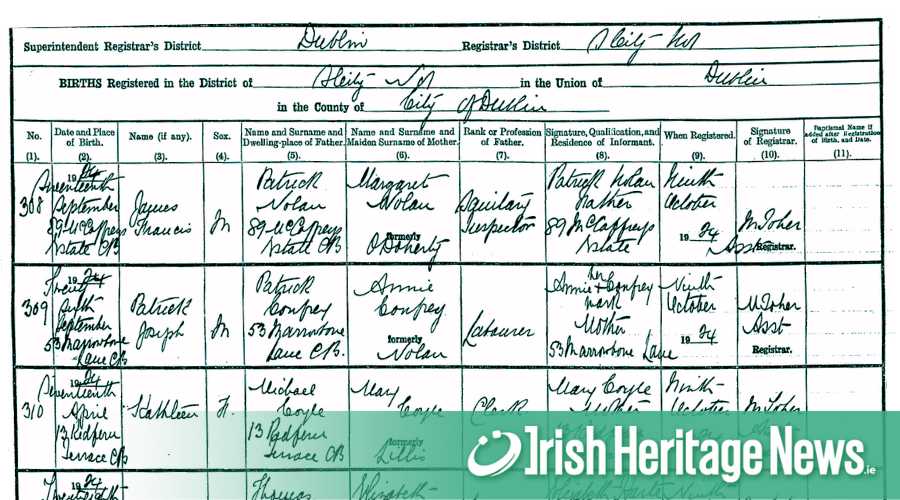 Superintendent Registrar's District Dublin Registrar's District
BIRTHS Registered in the District of in the Union of Dublin
in the County of City of Dublin
No. Date and Place of Birth. Name (if any). Sex. Name and Surname and Dwelling-place of Father. Name and Surname and Maiden Surname of Mother. Rank or Profession of Father. Signature, Qualification, and Residence of Informant. When Registered. Signature of Registrar. Baptismal Name if added after Registration of Birth, and Date.
(1). (2). (3). (4). (5). (6). (7). (8). (9). (10). (11).
308
1924
Seventeenth
September
89 McCaffreys
Estate C.B
James
Francis
M
Patrick
Nolan
89 McCaffreys
Estate C.B
Margaret
Nolan
formerly
O'Doherty
Sanitary
Inspector
Patrick Nolan
Father
89 McCaffreys
Estate
Ninth
October
1924
M Toher
Asst
Registrar.
309
1924
Twenty
fifth
September
53 Marrowbone
Lane C.B
Patrick
Joseph
M
Patrick
Confrey
53 Marrowbone
Lane C.B.
Annie
Confrey
formerly
Nolan
Labourer
Annie + Confrey
her
mark
Mother
53 Marrowbone Lane
Ninth
October
1924
M Toher
Asst
Registrar.
310
1924
Seventeenth
April
13
Terrace C.B
Kathleen
F.
Michael
Coyle
13
Terrace C.B
Mary
Coyle
formerly
Lillis
Clerk
Mary Coyle
Mother
Ninth
October
M Toher
19 24
Thomas
Elizabeth
Ninth
Irish Heritage News.ie